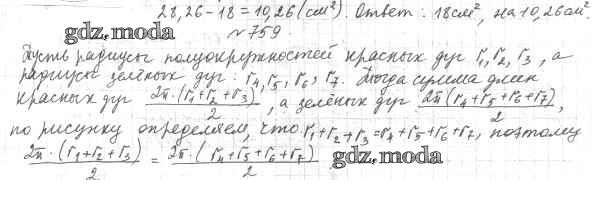 28,26-18=10,26 (см²). Ответ: 18см², на 10,26см².
gdz.moda
№759
Пусть радиусы полуокружностей красных дуг r₁, r₂, r₃, а
радиусы зелёных дуг: r₄, r₅, r₆, r₇. Тогда сумма длин
красных дуг 2π·(r₁+r₂+r₃)/2, а зелёных дуг 2π(r₄+r₅+r₆+r₇)/2,
по рисунку определяем, что r₁+r₂+r₃=r₄+r₅+r₆+r₇, поэтому
2π·(r₁+r₂+r₃)/2 = 2π·(r₄+r₅+r₆+r₇)/2
gdz.moda